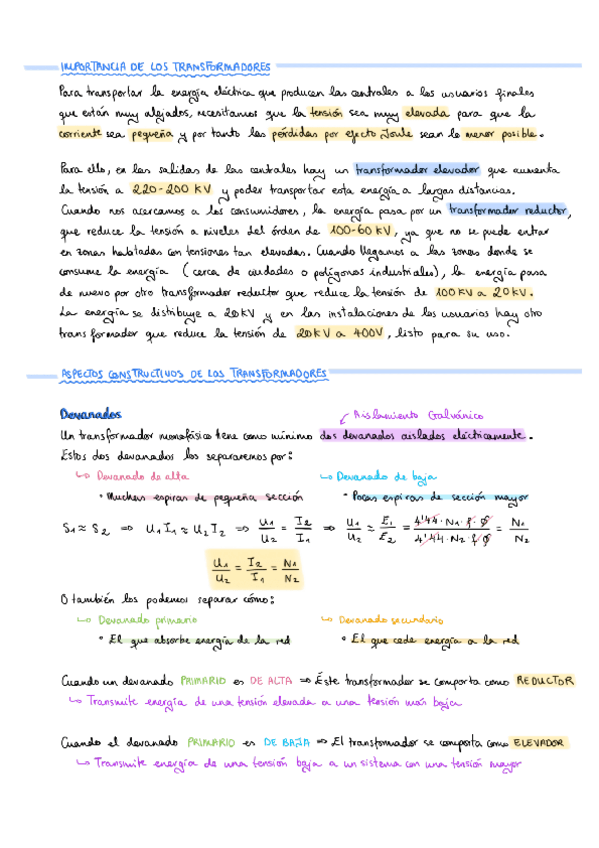 IMPORTANCIA DE LOS TRANSFORMADORES
Para transportar la energía eléctrica que producen las centrales a los usuarios finales
que están muy alejados, necesitamos que la tensión sea muy elevada para que la
corriente sea pequeña y por tanto las pérdidas por efecto Joule sean lo menor posible.
Para ello, en las salidas de las centrales hay un transformador elevador que aumenta
la tensión a 220-200 KV y poder transportar esta energía a largas distancias.
Cuando nos acercamos a los consumidores, la energía pasa por un transformador reductor,
que reduce la tensión a niveles del órden de 100-60 KV, ya que no se puede entrar
en zonas habitadas con tensiones tan elevadas. Cuando llegamos a las zonas donde se
consume la energía (cerca de ciudades o polígonos industriales), la energía pasa
de nuevo por otro transformador reductor que reduce la tensión de 100KV a 20KV.
La energía se distribuye a 20KV y en las instalaciones de los usuarios hay otro
transformador que reduce la tensión de 20KV a 400V, listo para su uso.
ASPECTOS CONSTRUCTIVOS DE LOS TRANSFORMADORES
Devanados
Aislamiento Galvánico
Un transformador monofásico tiene como mínimo dos devanados aislados eléctricamente.
Estos dos devanados los separaremos por:
↳ Devanado de alta ↳ Devanado de baja
• Muchas espiras de pequeña sección • Pocas espiras de sección mayor
S1 ≈ S2 ⇒ U1 I1 ≈ U2 I2 ⇒ U1/U2 = I2/I1 ⇒ U1/U2 ≈ E1/E2 = 4'44·N1·f·Φ/4'44·N2·f·Φ = N1/N2
U1/U2 = I2/I1 = N1/N2
O también los podemos separar cómo:
↳ Devanado primario ↳ Devanado secundario
• El que absorbe energía de la red • El que cede energía a la red
Cuando un devanado PRIMARIO es DE ALTA ⇒ Éste transformador se comporta como REDUCTOR
↳ Transmite energía de una tensión elevada a una tensión más baja
Cuando el devanado PRIMARIO es DE BAJA ⇒ El transformador se comporta como ELEVADOR
↳ Transmite energía de una tensión baja a un sistema con una tensión mayor